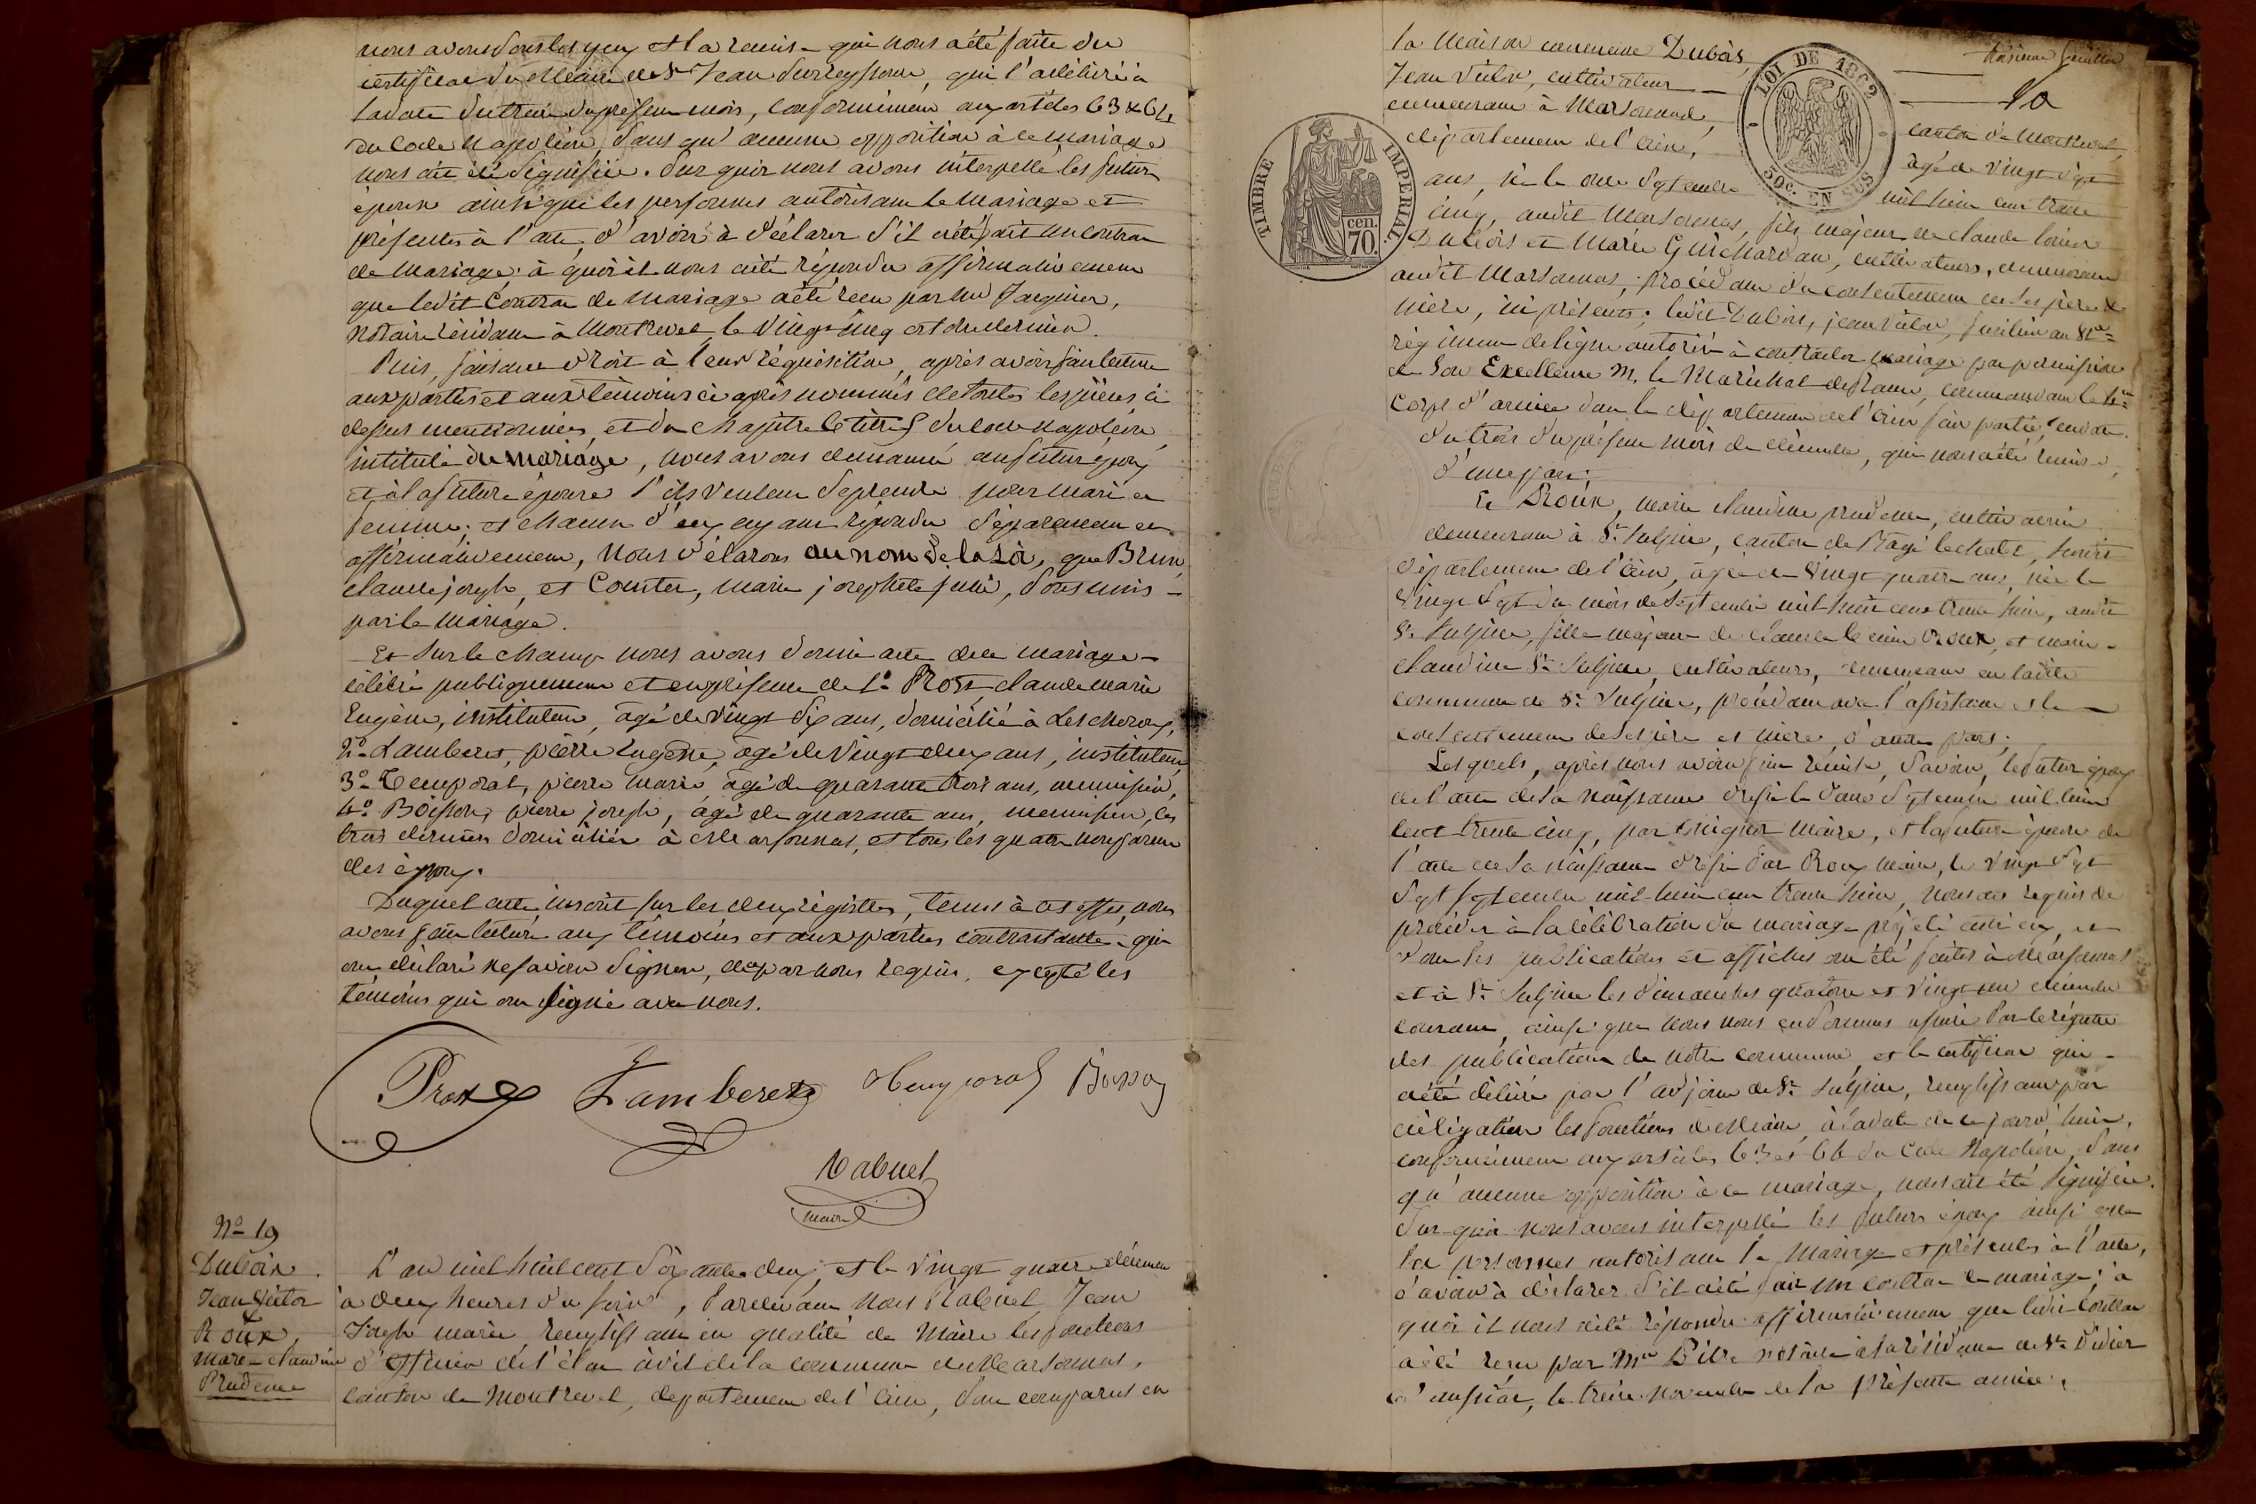 nous avons sous les yeux et la remise qui nous a été faite du
certificat du Maire de St Jean sur Reyssouze, qui l'a délivré à
la date du treize du présent mois, conformément aux articles 63 & 64
du Code Napoléon, sans qu'aucune opposition à ce mariage
nous ait été signifiée. Sur quoi nous avons interpellé les futurs
époux ainsi que les personnes autorisant le mariage et
présentes à l'acte, d'avoir à déclarer s'il a été fait un contrat
de mariage; à quoi il nous a été répondu affirmativement
que ledit contrat de mariage a été reçu par Me
notaire résidant à Montrevel, le vingt cinq octobre dernier.
Puis, faisant droit à leur réquisition, après avoir fait lecture
aux parties et aux témoins ci après nommés de toutes les pièces ci
dessus mentionnées, et du chapitre 6 titre 5 du code Napoléon,
intitulé du mariage, nous avons demandé au futur époux
et à la future épouse s'ils veulent se prendre pour mari et
femme; et chacun d'eux ayant répondu séparément et
affirmativement, nous déclarons au nom de la Loi, que Brun,
claude joseph, et Comtet, marie josephte julie, sont unis
par le mariage.
Et sur le champ nous avons donné acte de ce mariage
célébré publiquement et en présence de 1o Prost claude marie
Eugène, instituteur, âgé de vingt six ans, domicilié à Lescheroux,
2o Lamberet, pierre Eugène, âgé de vingt deux ans, instituteur,
3o Temporal, pierre marie, âgé de quarante trois ans, menuisier,
4o Boisson, pierre joseph, âgé de quarante ans, menuisier, les
trois derniers domiciliés à Marsonnas, et tous les quatre non parents
des époux.
Duquel acte inscrit sur les deux registres, tenus à cet effet, nous
avons fait lecture aux témoins et aux parties contractantes qui
ont déclaré ne savoir signer, de ce par nous requis, excepté les
témoins qui ont signé avec nous.
Prost Lamberet Temporal Boisson
Rabuel
maire
No 19
Dubois
Jean Victor
&
Roux,
Marie claudine
Prudence
L'an mil huit cent soixante deux, et le vingt quatre décembre
à deux heures du soir, pardevant nous Rabuel, Jean
Joseph marie remplissant en qualité de Maire les fonctions
d'officier de l'état civil de la commune de Marsonnas,
canton de Montrevel, département de l'ain, sont comparus en
la Maison commune Dubois,
Jean Victor, cultivateur
demeurant à Marsonnas,
canton de Montrevel,
département de l'ain,
âgé de vingt sept
ans, né le onze Septembre
mil huit cent trente
cinq, audit Marsonnas, fils majeur de claude louis
Dubois et Marie Guichardan, cultivateurs, demeurant
audit Marsonnas; procédant du consentement de ses père &
mère, ici présents; ledit Dubois, jean victor, fusilier au
régiment de ligne autorisé à contracter mariage par permission
de Son Excellence M. le Maréchal commandant le 4me
Corps d'armée dont le département de l'ain fait partie, en date
du trois du présent mois de décembre, qui nous a été remise,
d'une part;
Et Roux, marie claudine prudence, cultivatrice
demeurant à St Sulpice, canton de Bagé le chatel, susdit
département de l'ain, âgée de vingt quatre ans, née le
vingt sept du mois de Septembre mil huit cent trente huit, audit
St Sulpice, fille majeure de claude Roux, et marie
claudine St Sulpice, cultivateurs, demeurant en ladite
commune de St Sulpice, procédant avec l'assistance et le
consentement de ses père et mère, d'autre part;
Lesquels, après nous avoir fait remise, savoir, le futur époux
de l'acte de sa naissance dressé le douze Septembre mil huit
cent trente cinq, par maire, et la future épouse de
l'acte de sa naissance dressé par Roux maire, le vingt sept
Septembre mil huit cent trente huit, nous ont requis de
procéder à la célébration du mariage projeté entre eux, et
dont les publications et affiches ont été faites à Marsonnas
et à St Sulpice les dimanches quatorze et vingt un décembre
courant, ainsi que nous nous en sommes assuré par le registre
des publications de notre commune et le certificat qui
a été délivré par l'adjoint de St Sulpice, remplissant par
délégation les fonctions de Maire, à la date de ce jourd'hui,
conformément aux articles 63 et 64 du Code Napoléon, sans
qu'aucune opposition à ce mariage, nous ait été signifiée.
Sur quoi nous avons interpellé les futurs époux ainsi que
les personnes autorisant le mariage et présentes à l'acte,
d'avoir à déclarer s'il a été fait un contrat de mariage; à
quoi il nous a été répondu affirmativement que ledit contrat
a été reçu par Me notaire à la résidence de St Didier
d'aussiat, le treize novembre de la présente année.
TIMBRE IMPERIAL
cen. 70.
LOI DE 1862
50c. EN SUS
feuillet